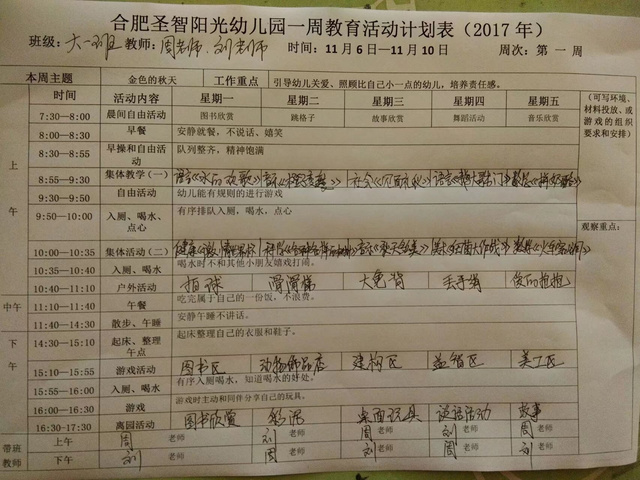 合肥圣智阳光幼儿园一周教育活动计划表（2017 年）
班级：大一班 教师：周老师、刘老师 时间：11 月 6 日—11 月 10 日 周次：第 一 周
本周主题 金色的秋天 工作重点 引导幼儿关爱、照顾比自己小一点的幼儿，培养责任感。
时间 活动内容 星期一 星期二 星期三 星期四 星期五 （可写环境、材料投放、或游戏的组织要求和安排）
上午
7:30—8:00 晨间自由活动 图书欣赏 跳格子 故事欣赏 舞蹈活动 音乐欣赏
8:00—8:30 早餐 安静就餐，不说话、嬉笑
8:30—8:55 早操和自由活动 队列整齐，精神饱满
8:55—9:30 集体教学（一） 语言 社会 语言
9:30—9:50 自由活动 幼儿能有规则的进行游戏
9:50—10:00 入厕、喝水、点心 有序排队入厕、喝水、点心
观察重点：
10:00—10:35 集体活动（二） 健康 科学 音乐 美术
10:35—10:40 入厕、喝水 喝水时不和其他小朋友嬉戏打闹。
10:40—11:10 户外活动 拍球 滑滑梯 大龟背 丢手绢
中午
11:10—11:40 午餐 吃完属于自己的一份饭，不浪费。
11:40—14:30 散步、午睡 安静午睡不讲话。
下午
14:30—15:10 起床、整理午点 起床整理自己的衣服和鞋子。
15:10—15:55 游戏活动 图书区 动物饰品店 建构区 益智区 美工区
15:55—16:00 入厕、喝水 有序入厕喝水，知道喝水的好处。
16:00—16:30 游戏 游戏时主动和同伴分享自己的玩具。
16:30-17:30 离园活动 图书欣赏 彩泥 桌面玩具 谈话活动 故事
带班教师
上午 周 老师 刘 老师 周 老师 刘 老师 周 老师
下午 刘 老师 周 老师 刘 老师 周 老师 刘 老师